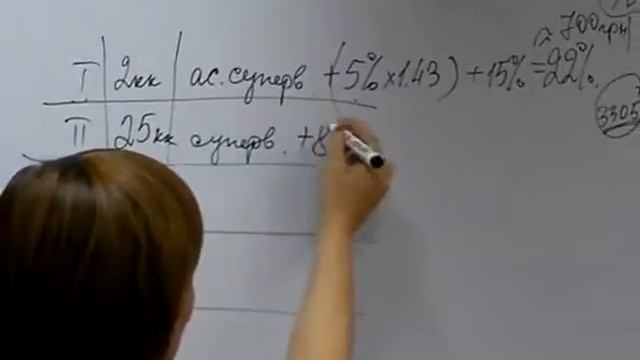 ≈ 700грн
I 2кк ас. суперв. (+5% x 1.43) + 15% = 22%.
3305
II 25кк суперв. +8